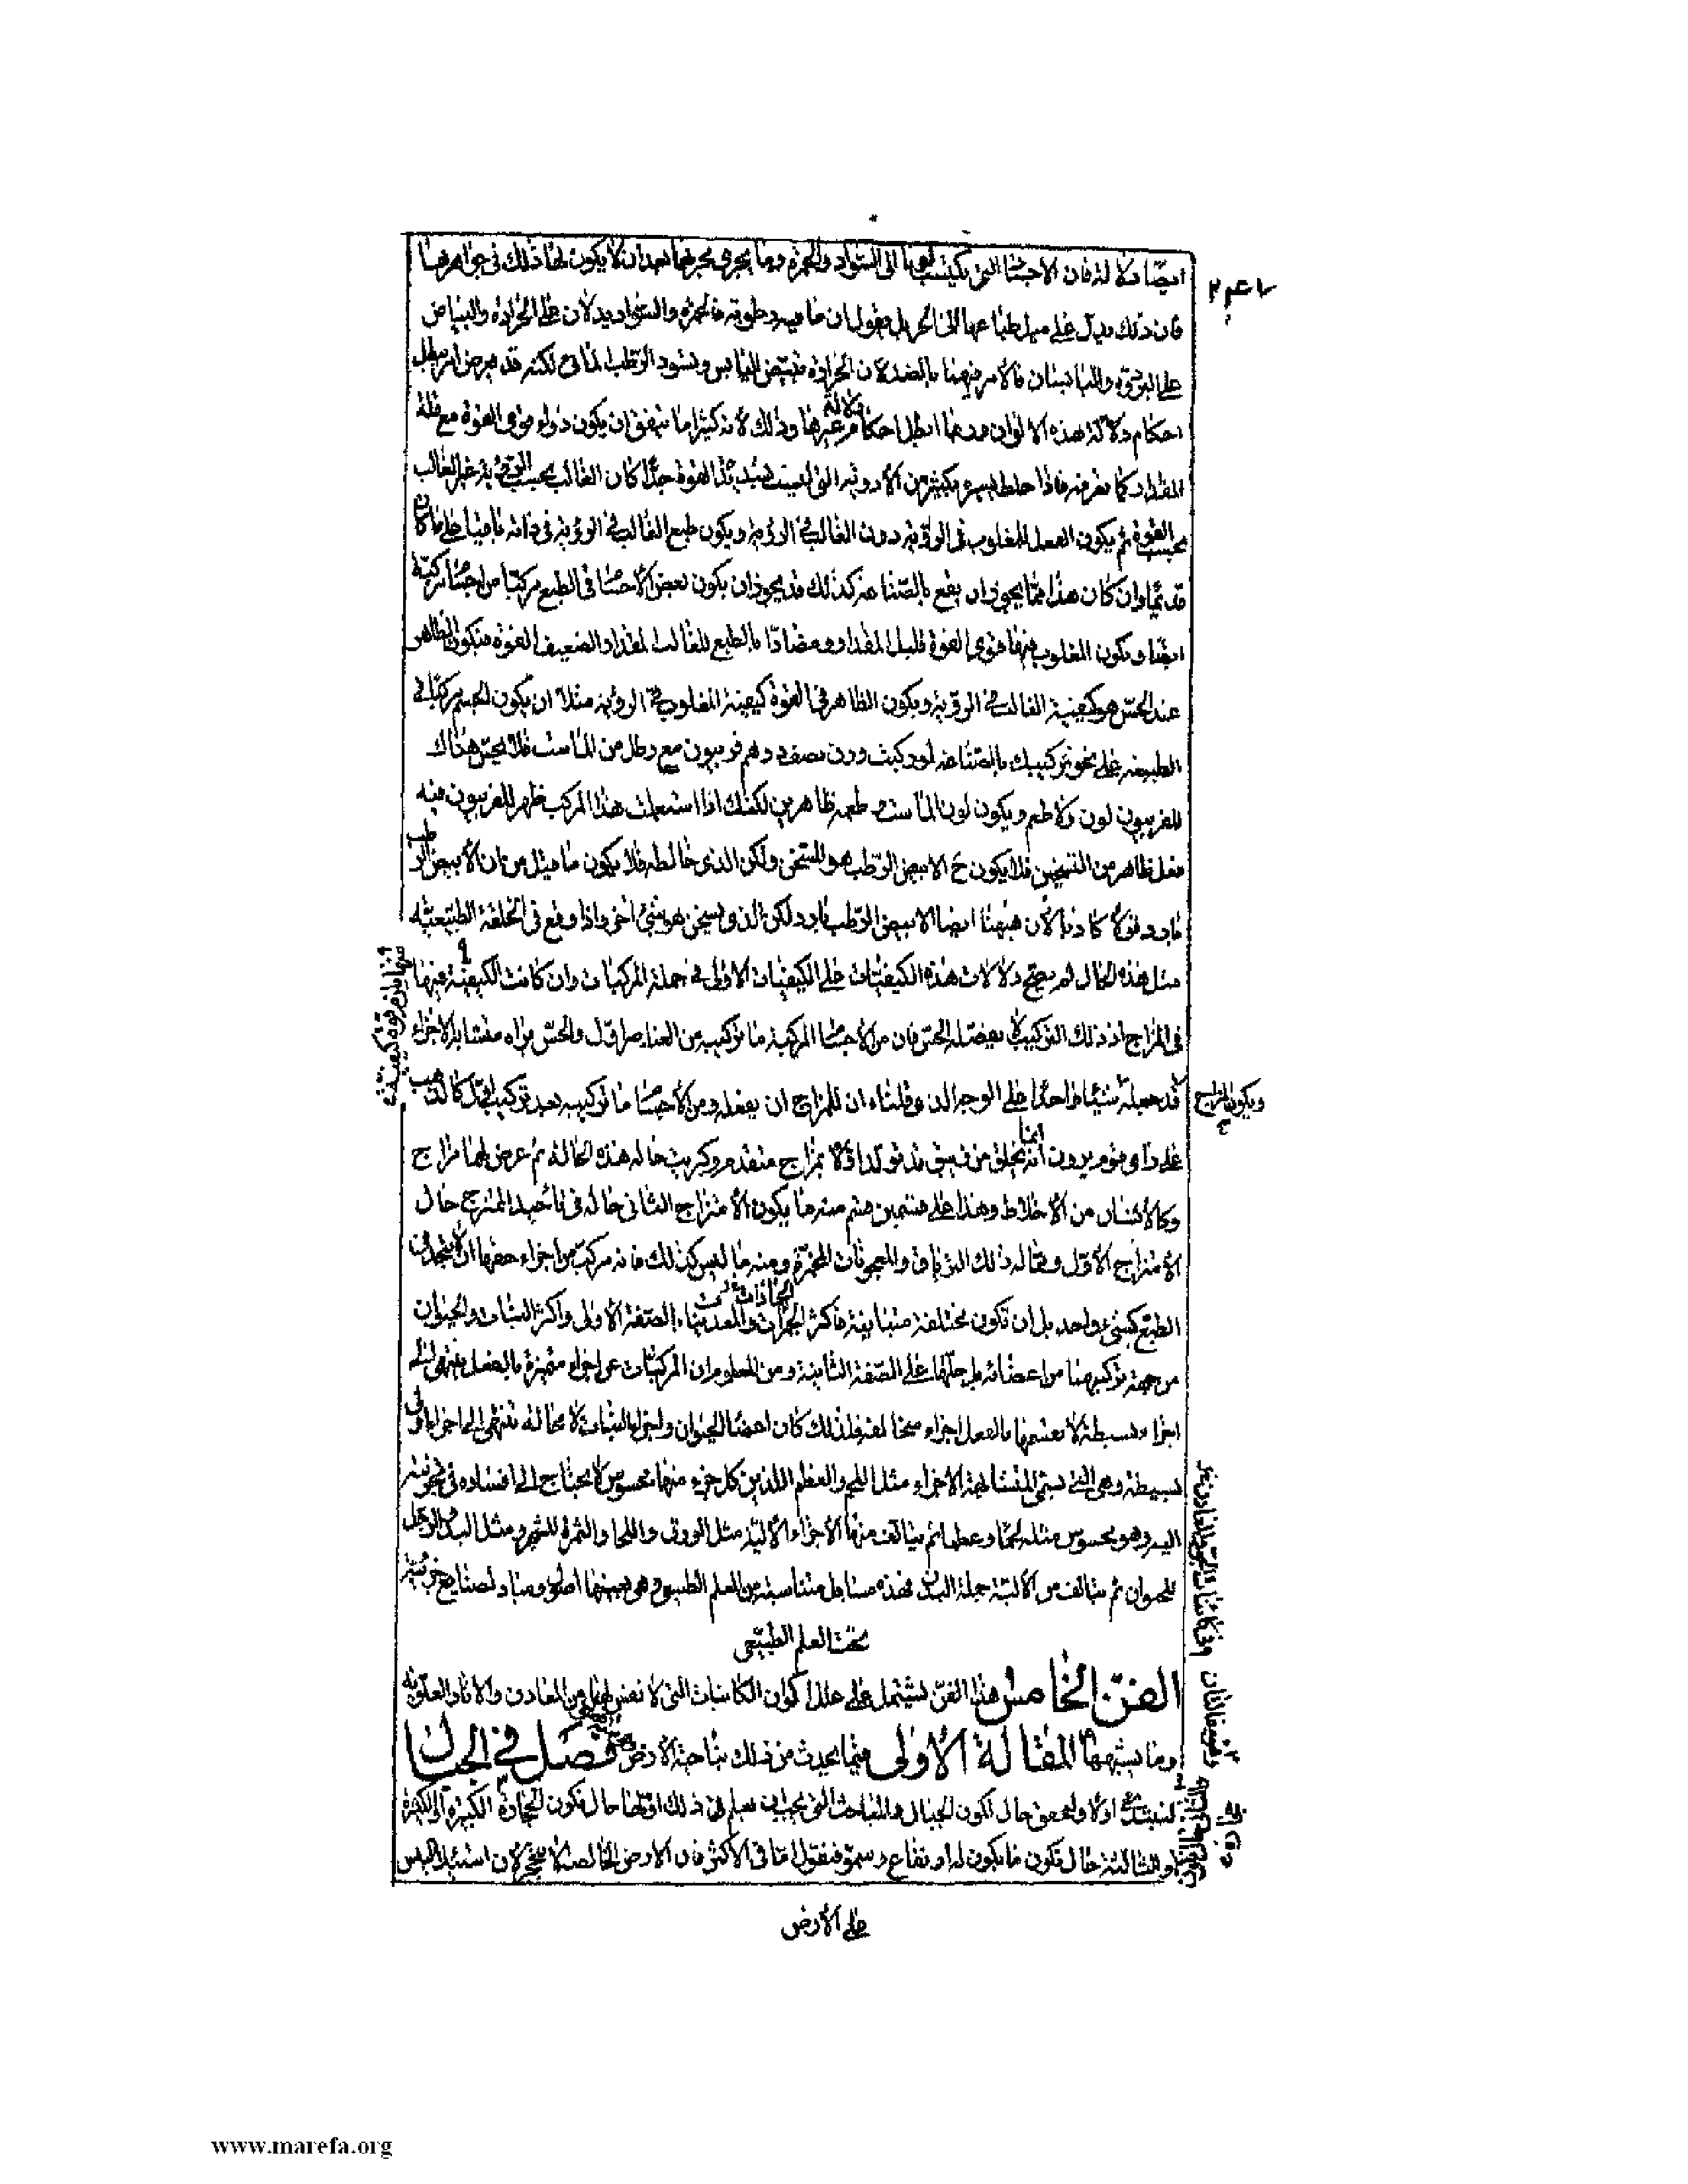 ايضا دلالة فان الاجسام التى تكتسب لونها الى السواد والحمرة وما يجرى مجراهما بعد ان لا يكون لها ذلك فى جواهرها
٢٤٧
فان ذلك يدل على ميل طباعها الى الحر بل نقول ان ما فيه رطوبة فالحمرة والسواد يدلان على الحرارة والبياض
على البرودة واليابسان فالامر فيهما بالضد لان الحرارة تبيض اليابس وتسود الرطب لكنه قد يعرض امر يبطل
احكام دلالة هذه الالوان وربما ابطل احكام دلالة غيرها وذلك لانه كثيرا ما يتفق ان يكون دواء قوى القوة مع قلة
المقدار كما نعرفه فاذا خلط يسيره بكثير من الادوية التى ليست شديدة القوة جدا كان الغالب بحسب الرؤية غير الغالب
بحسب القوة ثم يكون الفعل للمغلوب فى الرؤية دون الغالب فى الرؤية ويكون طبع الغالب فى الرؤية فى ذاته باقيا على ما كان
قديما وان كان هذا مما يجوز ان يقع بالصناعة كذلك قد يجوز ان يكون بعض الاجسام فى الطبع مركبا من اجسام مركبة
ايضا ويكون المغلوب فيها قوى القوة قليل المقدار ومضادا بالطبع للغالب المقدار الضعيف القوة فيكون الظاهر
عند الحس هو كيفية الغالب فى الرؤية ويكون الظاهر فى القوة كيفية المغلوب فى الرؤية مثلا ان يكون الجسم مركبا فى
الطبيعة على نحو تركيبك بالصناعة لو ركبت وزن نصف درهم فربيون مع رطل من الماست فلا يحس هناك
للفربيون لون ولا طعم ويكون لون الماست وطعمه ظاهرين لكنك اذا استعملت هذا المركب ظهر للفربيون فيه
فعل ظاهر من التسخين فلا يكون ح الابيض الرطب هو المسخن ولكن الذى خالطه فلا يكون ما قيل من ان الابيض الرطب
بارد قولا كاذبا لان هيهنا ايضا الابيض الرطب بارد لكن الذى يسخن هو شىء آخر واذا وقع فى الخلقة الطبيعية
مثل هذه الحال لم يصح دلالات هذه الكيفيات على الكيفيات الاولى فى جملة المركبات وان كانت الكيفية فيها
فى المزاج اذ ذلك التركيب لا يفصله الحس فان من الاجسام المركبة ما تركيبه من العناصر اول والحس يراه متشابه الاجزاء
قد جعله شيئا واحدا على الوجه الذى قلناه ان للمزاج ان يفعله ومن الاجسام ما تركيبه بعد تركيب اول كالذهب
ويكون المزاج
على راى قوم يرون انه انما يخلق من زيبق قد تولد اولا بمزاج متقدم وكبريت حاله هذه الحالة ثم عرض لهما مزاج
وكالانسان من الاخلاط وهذا على قسمين قسم منه ما يكون الامتزاج الثانى حاله فى تاحيد الممتزج حال
الامتزاج الاول ومثاله ذلك الترياق والمعجونات المخمرة ومنه ما ليس كذلك فانه مركب من اجزاء حقها ان لا يتحد فى
الطبع كشىء واحد بل ان تكون مختلفة متباينة فاكثر الجمادات والمعدنيات بالصفة الاولى واكثر النبات والحيوان
من جهة تركيبهما من اعضائه بل جلها على الصفة الثانية ومن المعلوم ان المركبات عن اجزاء متميزة بالفعل ينتهى الى
اجزاء بسيطة لا يقسمها بالفعل اجزاء متخالفة فلذلك كان اعضاء الحيوان واجزاء النبات لا محالة تنتهى الى اجزاء اولى
بسيطة وهى التى تسمى المتشابهة الاجزاء مثل اللحم والعظم اللذين كل جزء منهما محسوس لا يحتاج الى افساده فى تجزئته
اليه وهو محسوس مثله لحما وعظما ثم يتالف منها الاجزاء الالية مثل الورق واللحا والثمرة للشجر ومثل اليد والرجل
للحيوان ثم يتالف من الالية جملة البدن فهذه مسائل متناسبة من العلم الطبيعى وهى بعينها اصول ومباد لصنايع جزئية
تحت العلم الطبيعى
الفن الخامس هذا الفن يشتمل على علل اكوان الكاينات التى لا نفس لها من المعادن والاثار العلوية
وما يشبهها المقالة الاولى فيما يحدث من ذلك بناحية الارض فصل فى الجبال
لنبتدئ اولا ولنحقق حال تكون الجبال والمباحث التى يجب ان تعلم فى ذلك اولها حال تكون الحجارة
والثالثة حال تكون ما يكون له ارتفاع وسمو فنقول اما فى الاكثر فان الارض الخالصة لا تتحجر لان استيلاء اليبس
على الارض
www.marefa.org